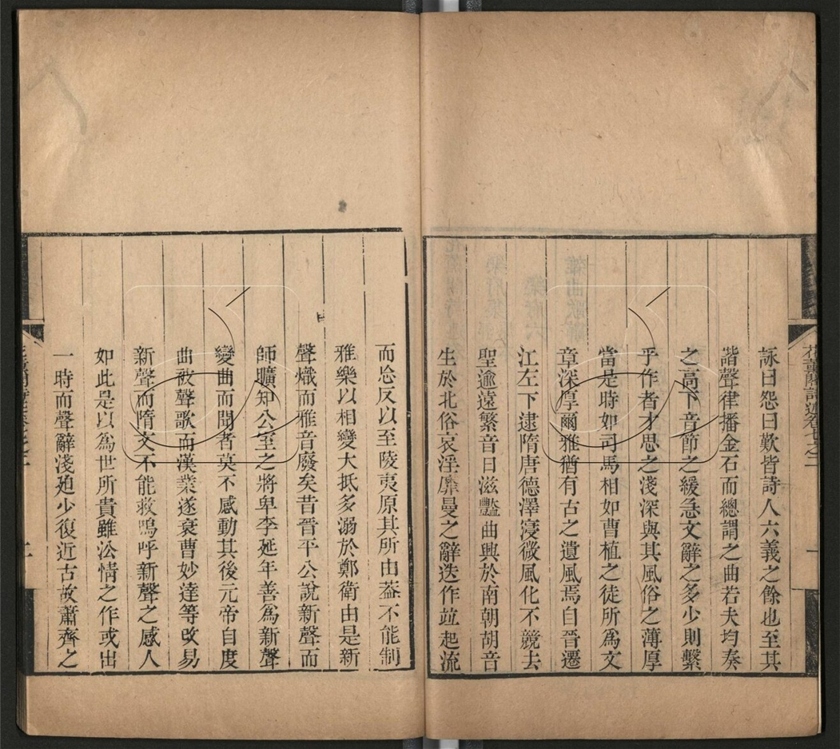 詠曰怨曰歎皆詩人六義之餘也至其
諧聲律播金石而總謂之曲若夫均奏
之高下音節之緩急文辭之多少則繫
乎作者才思之淺深與其風俗之薄厚
當是時如司馬相如曹植之徒所爲文
章深厚爾雅猶有古之遺風焉自晉遷
江左下逮隋唐德澤寖微風化不競去
聖逾遠繁音日滋豔曲興於南朝胡音
生於北俗哀淫靡曼之辭迭作竝起流
而忘反以至陵夷原其所由蓋不能制
雅樂以相變大抵多溺於鄭衛由是新
聲熾而雅音廢矣昔晉平公說新聲而
師曠知公室之將卑李延年善爲新聲
變曲而聞者莫不感動其後元帝自度
曲被聲歌而漢業遂衰曹妙達等改易
新聲而隋文不能救嗚呼新聲之感人
如此是以爲世所貴雖沿情之作或出
一時而聲辭淺廹少復近古故蕭齊之